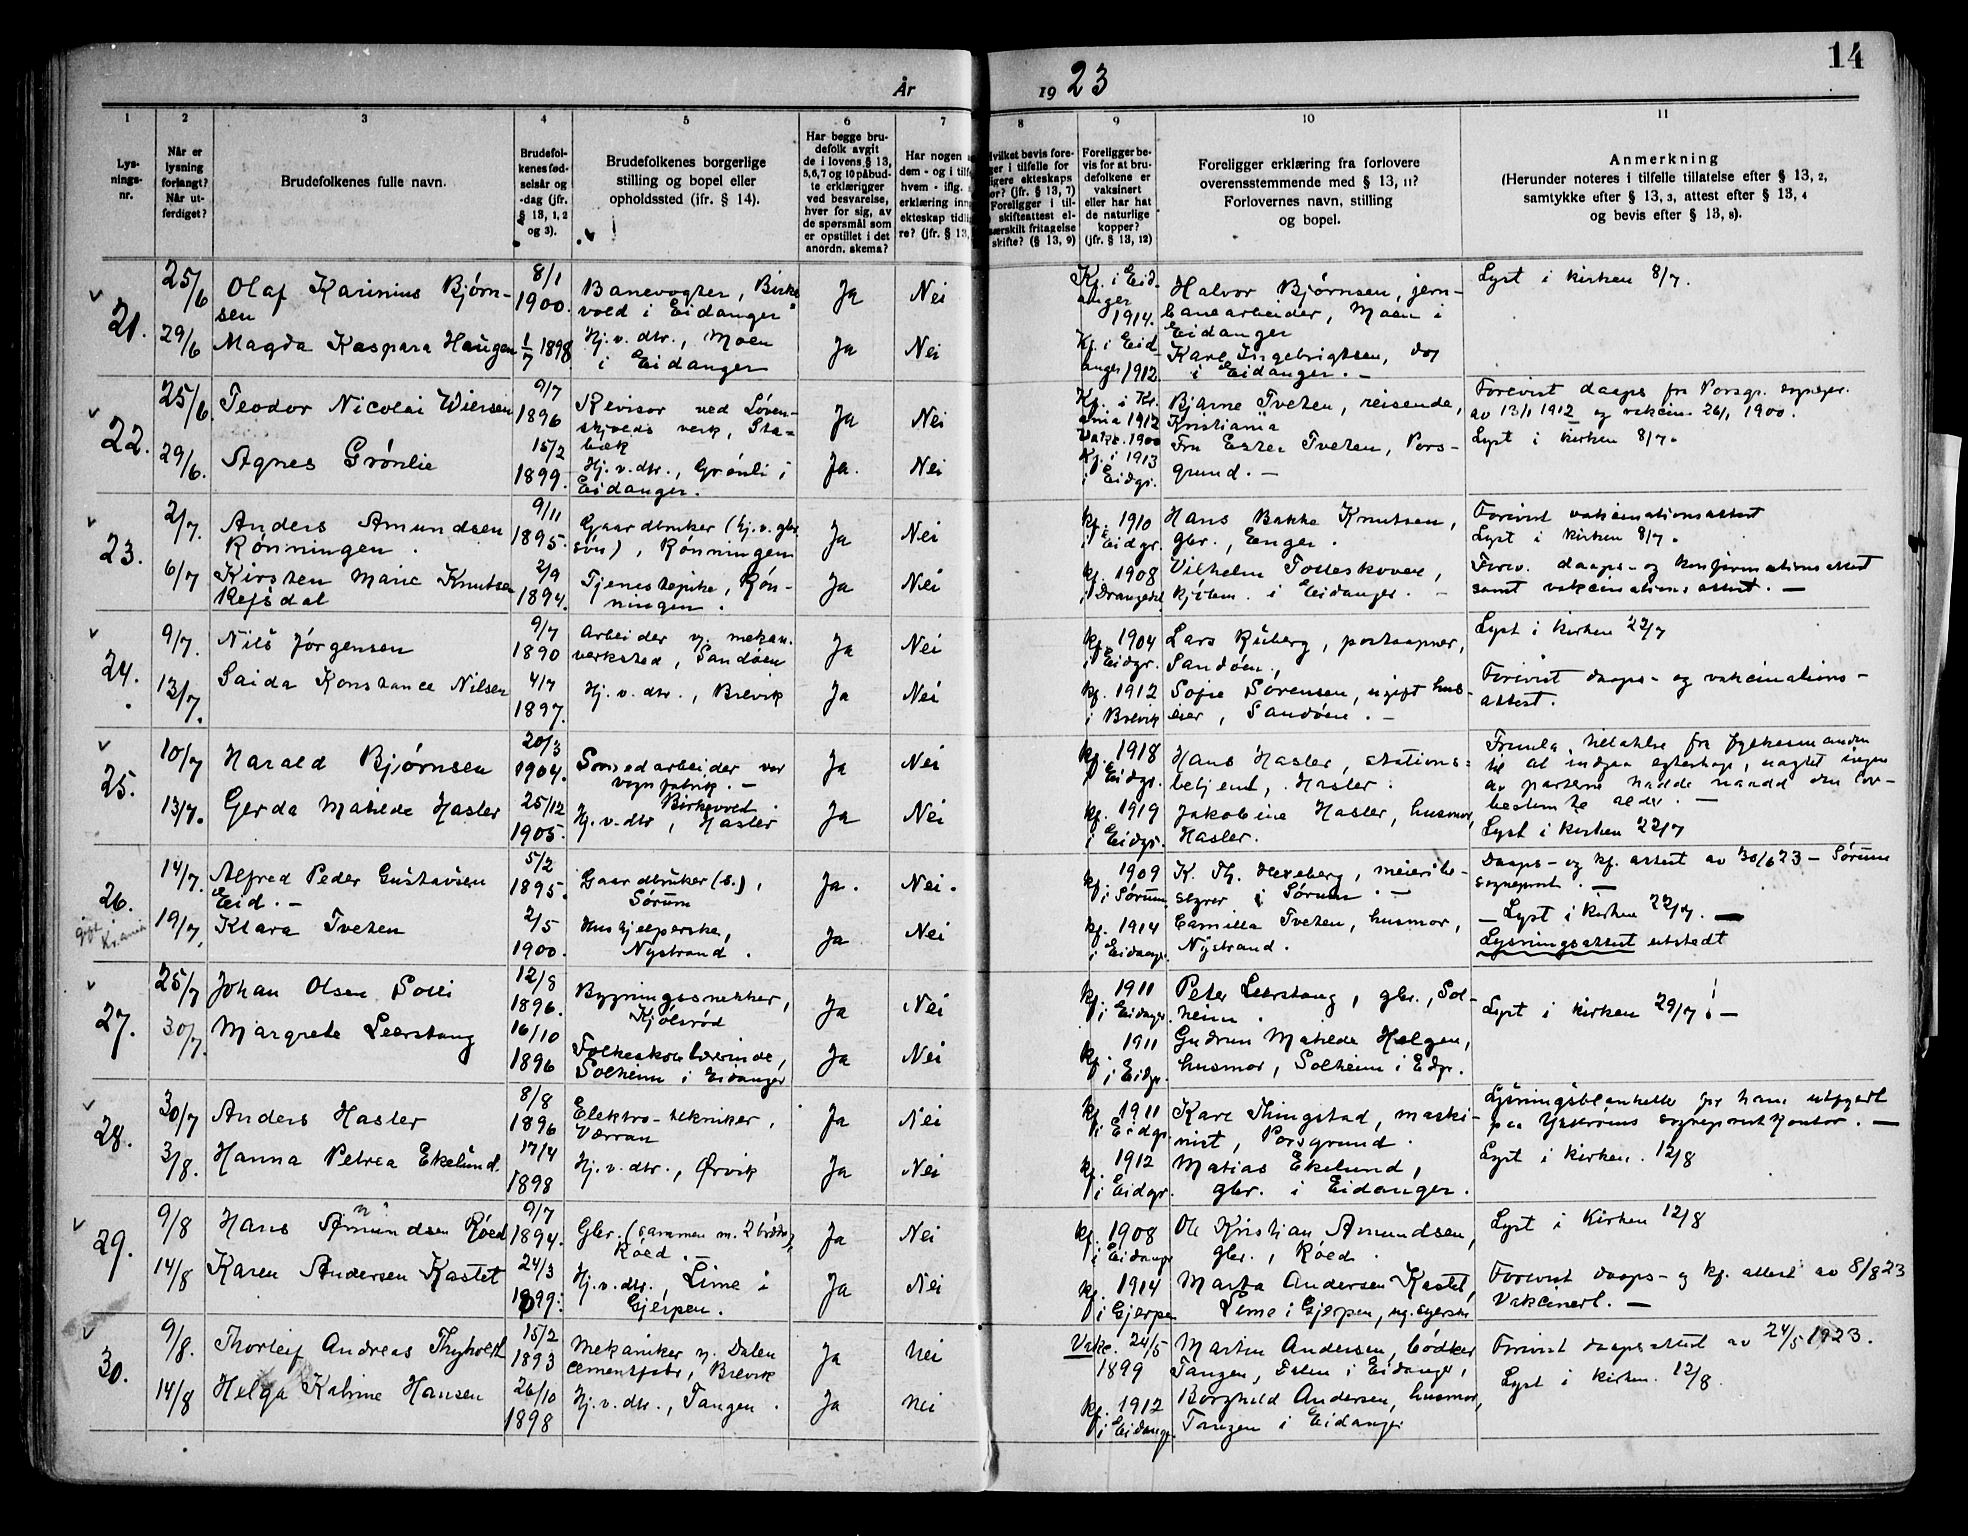 År 1923
14
1
2
3
4
5
6
7
8
9
10
11
Lys-
nings-
nr.
Når er
lysning
forlangt?
Når ut-
ferdiget?
Brudefolkenes fulle navn.
Brudefol-
kenes fød-
selsår og
-dag (jfr.
§ 13, 1, 2
og 3).
Brudefolkenes borgerlige
stilling og bopel eller
opholdssted (jfr. § 14).
Har begge bru-
defolk avgit
de i lovens § 13,
5,6,7 og 10 påbud-
te erklæringer
ved besvarelse,
hver for sig, av
de spørsmål som
er opstillet i det
anordn. skema?
Har nogen
dem - og i tilf
hvem - iflg.
erklæring inng
ekteskap tidlig
re? (jfr. § 13,
Hvilket bevis fore-
ger i tilfelle for
ligere ekteskaps
or? (jfr. § 13, 7)
Foreligger i til-
skifteattest el-
særskilt fritagelse
skifte? (§ 13, 9)
Foreligger be-
vis for at bru-
defolkene er
vaksinert
eller har hat
de naturlige
kopper?
(jfr. § 13, 12)
Foreligger erklæring fra forlovere
overensstemmende med § 13, 11?
Forlovernes navn, stilling
og bopel.
Anmerkning
(Herunder noteres i tilfelle tillatelse efter § 13, 2,
samtykke efter § 13, 3, attest efter § 13, 4
og bevis efter § 13, 8).
21.
25/6
Olaf Karinius Bjørn-
sen
8/1
1900.
Banevogter, Birke
vold i Eidanger
Ja
Nei
Kf. i Eid-
anger
1914.
Halvor Bjørnsen, jern-
banearbeider, Moen i
Eidanger
Lyst i kirken 8/7.
29/6
Magda Kaspara Haugen
1/7 1898
Hj.v.dtr., Moen
i Eidanger
Ja
Nei
Kf. i Eid
anger 1912
Karl Ingebrigtsen, do
i Eidanger. —
22.
25/6
Teodor Nicolai Wiersen
9/7
1896
Revisor ved Løven-
skjolds verk, Sta-
bæk
Ja
Nei
Kf. i Kr.
ania 1912
Vakc. 1900
Bjarne Tveten, reisende,
Kristiania
Forevist daaps fra Porsgr. sogнepr.
av 13/1 1912 og vakcin. 26/1 1900.
Lyst i kirken 8/7.
29/6.
Agnes Grønlie
15/2
1899.
Hj.v.dtr., Grønli i
Eidanger.
Ja.
Nei
Kf. i 1913
i Eidgr.
Fru Ester Tveten, Pors-
grund. —
23.
2/7.
Anders Amundsen
Rønningen.
9/11
1895.
Gaardbruker (hj.v. gbr.
søn), Rønningen
Ja
Nei
kf. 1910
i Eidgr.
Hans Bakke Knutsen,
gbr., Enger.
Forevist vakcinationsattest
Lyst i kirken 8/7.
6/7
Kirsten Marie Knutsen
Refsdal
2/9
1894.
Tjenestepike, Røn-
ningen.
Ja
Nei
kf. 1908
i Drangedal
Vilhelm i Eidanger. —
Forev. daaps- og konfirmationsattest
samt vakcinationsattest. —
24.
9/7.
Nils Jørgensen
9/7
1890
Arbeider v. mekan.
verksted, Sandøen
Ja
Nei
kf. 1904
i Eidgr.
Lars Ruberg, postaapner,
Sandøen.,
Lyst i kirken 22/7
13/7.
Saida Konstance Nilsen
4/7
1897.
Hj.v.dtr., Brevik
Ja
Nei
kf. 1912
i Brevik
Sofie Sørensen, ugift hus-
eier, Sandøen. —
Forevist daaps- og vakcinations-
attest.
25.
10/7
Harald Bjørnsen
20/3
1904.
Smedarbeider ver
vognfabrik. —
Birkevold.
Ja
Nei
kf. 1918
i Eidgr.
Hans Hasler, stations-
betjent, Hasler.
Fremla. tillatelse fra fylkesmanden
til at indgaa egteskap, uagtet ingen
av parterne hadde naadd den lov-
bestemte alder. —
13/7.
Gerda Matilde Hasler
25/12
1905.
Hj.v.dtr, Hasler
Ja
Nei
kf. 1919
i Eidgr.
Jakobine Hasler, husmor,
Hasler.
Lyst i kirken 22/7
26.
gift
Kr.ania
14/7.
Alfred Peder Gustavsen
Eid. —
5/2
1895.
Gaardbruker (s.),
Sørum
Ja.
Nei.
kf. 1909
i Sørum
K. Th. Hexeberg, meieribe-
styrer i Sørum —
Daaps- og kf. attest av 30/6 23 — Sørum
sogneprest. —
19/7,
Klara Tveten
2/5
1900.
Hushjelperske,
Nystrand.
Ja
Nei
kf. 1914
i Eidangr.
Camilla Tveten, husmor,
Nystrand.
— Lyst i kirken 22/7. —
Lysningsattest utstedt
27.
25/7
Johan Olsen Solli
12/8
1896.
Bygningssnekker,
Kjølsrød
Ja
Nei
kf. 1911
i Eidangr.
Peter Leerstang, gbr., Sol-
heim.
Lyst i kirken 29/7. —
30/7.
Margrete Leerstang
16/10
1896
Folkeskolelærerinde,
Solheim i Eidanger
Ja
Nei
kf. 1911
i Eidgr.
Gudrun Matilde Helgen,
husmor, Solheim i Edgr.
28.
30/7
Anders Hasler
8/8
1896
Elektro-tekniker,
Værran
Ja
Nei
kf. 1911
i Eidgr.
Karl Thingstad, maski-
nist, Porsgrund.
Lysningsblankett for ham utfyldt
paa sogneprestkontor. —
3/8.
Hanna Petrea Ekelund.
17/4
1898
Hj.v.dtr., Ørvik
Ja
Nei
kf. 1912
i Eidgr.
Matias Ekelund,
gbr. i Eidanger.
Lyst i kirken. 12/8
29.
9/8
Hans Amundsen Røed
9/7
1894.
Gbr. (sammen m. 2 brødre),
Røed. —
Ja
Nei
kf. 1908
i Eidangr
Ole Kristian Amundsen,
gbr., Røed.
Lyst i Kirken 12/8
14/8
Karen Andersen Kastet
24/3
1899.
Hj.v.dtr. Lime i
Gjerpen.
Ja
Nei
kf. 1914
i Gjerpen
Marta Andersen Kastet,
Lime i Gjerpen,
Forevist daaps- og kf. attest av 8/8 23
Vakcinert. —
30.
9/8.
Thorleif Andreas Thyholdt
15/2
1893
Mekaniker v. Dalen
cementfabr, Brevik
Ja
Nei
Vakc. 24/5
1899
Martin Andersen, bødker
Tangen, Dalen i Eidanger,
Forevist daapsattest av 24/5 1923.
14/8
Helga Katrine Hansen
26/10
1898
Hj.v.dtr., Tangen.
Ja
Nei
kf. 1912
i Eidangr.
Borghild Andersen, husmor,
Tangen i Eidanger
Lyst i kirken. 12/8.